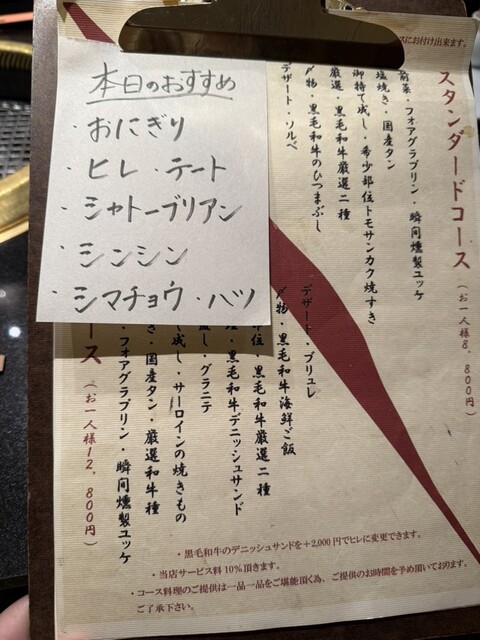 本日のおすすめ
・おにぎり
・ヒレ・テート
・シャトーブリアン
・シンシン
・シマチョウ・ハツ
スにお付け出来ます。
スタンダードコース(お一人様8,800円)
前菜・フォアグラプリン・瞬間燻製ユッケ
塩焼き・国産タン
御持て成し・希少部位トモサンカク焼すき
厳選・黒毛和牛厳選二種
〆物・黒毛和牛のひつまぶし
デザート・ソルベ
ース(お一人様12,800円)
・フォアグラプリン・瞬間燻製ユッケ
き・国産タン・厳選和牛種
て成し・サーロインの焼きもの
直し・グラニテ
・黒毛和牛デニッシュサンド
部位・黒毛和牛厳選二種
〆物・黒毛和牛海鮮ご飯
デザート・ブリュレ
・黒毛和牛のデニッシュサンドを+2,000円でヒレに変更できます。
・当店サービス料10%頂きます。
・コース料理のご提供は一品一品をご堪能頂く為、ご提供のお時間を予め頂いております。
ご了承下さい。